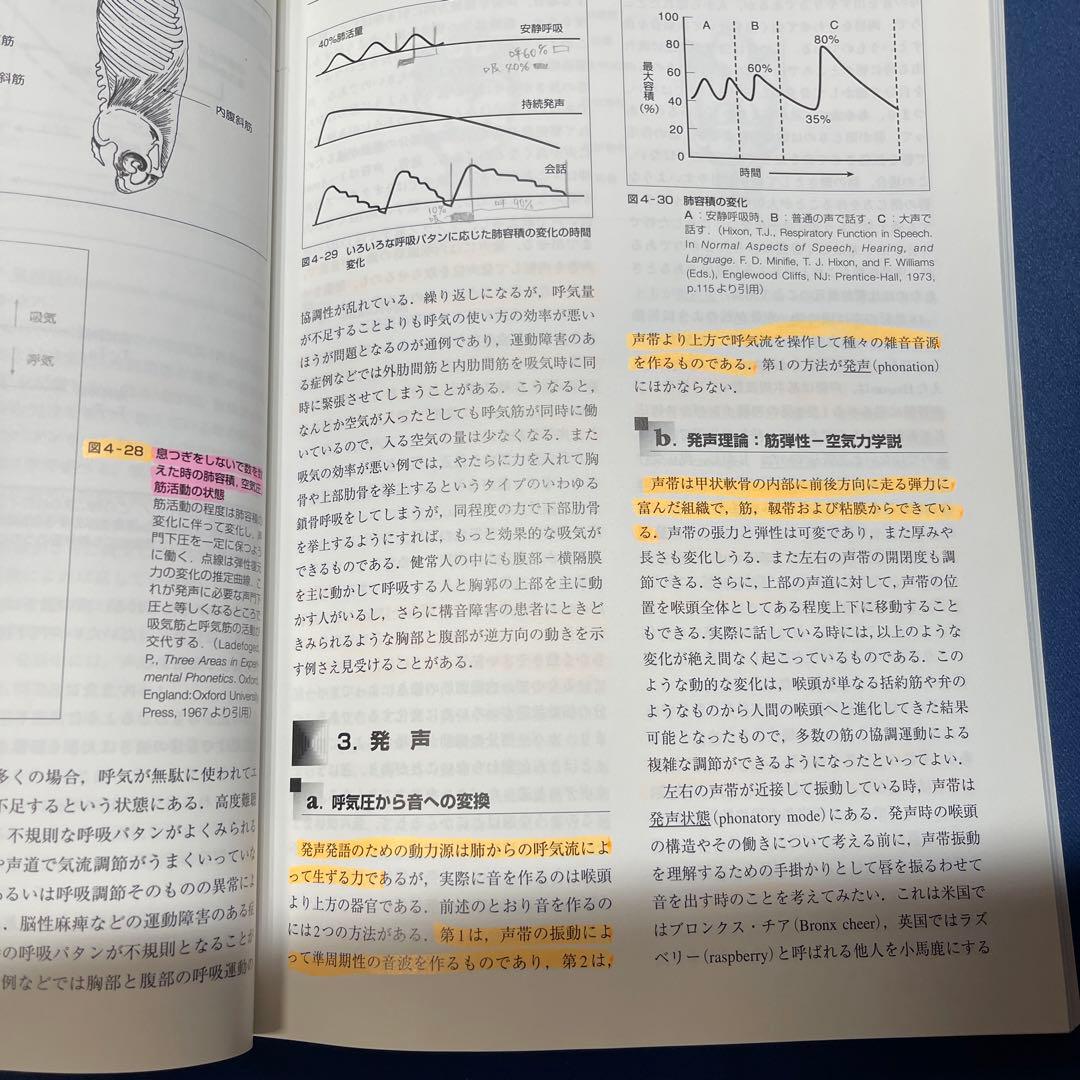 斜筋
内腹斜筋
吸気
呼気
図4-28 息つぎをしないで数を数
えた時の肺容積,空気圧,
筋活動の状態
筋活動の程度は肺容積の
変化に伴って変化し,声
門下圧を一定に保つよう
に働く.点線は弾性復元
力の変化の推定曲線.こ
れが発声に必要な声門下
圧と等しくなるところで
吸気筋と呼気筋の活動が
交代する.(Ladefoged,
P., Three Areas in Experi-
mental Phonetics. Oxford,
England:Oxford University
Press, 1967より引用)
多くの場合,呼気が無駄に使われてエ
不足するという状態にある.高度難聴
不規則な呼吸パタンがよくみられる
や声道で気流調節がうまくいっていな
あるいは呼吸調節そのものの異常によ
.脳性麻痺などの運動障害のある症
の呼吸パタンが不規則となることが
例などでは胸部と腹部の呼吸運動の
40%肺活量
安静呼吸
呼60%
吸40%
持続発声
会話
10%
吸
呼 90%
図4-29 いろいろな呼吸パタンに応じた肺容積の変化の時間
変化
協調性が乱れている.繰り返しになるが,呼気量
が不足することよりも呼気の使い方の効率が悪い
ほうが問題となるのが通例であり,運動障害のあ
る症例などでは外肋間筋と内肋間筋を吸気時に同
時に緊張させてしまうことがある.こうなると,
なんとか空気が入ったとしても呼気筋が同時に働
いているので,入る空気の量は少なくなる.また
吸気の効率が悪い例では,やたらに力を入れて胸
骨や上部肋骨を挙上するというタイプのいわゆる
鎖骨呼吸をしてしまうが,同程度の力で下部肋骨
を挙上するようにすれば,もっと効果的な吸気が
できるものである.健常人の中にも腹部-横隔膜
を主に動かして呼吸する人と胸郭の上部を主に動
かす人がいるし,さらに構音障害の患者にときど
きみられるような胸部と腹部が逆方向の動きを示
す例さえ見受けることがある.
3. 発 声
a. 呼気圧から音への変換
発声発語のための動力源は肺からの呼気流によ
って生ずる力であるが,実際に音を作るのは喉頭
より上方の器官である.前述のとおり音を作るの
には2つの方法がある.第1は,声帯の振動によ
って準周期性の音波を作るものであり,第2は,
最大容積(%)
100
80
60
40
20
0
A
B
C
60%
80%
35%
時間
図4-30 肺容積の変化
A:安静呼吸時,B:普通の声で話す.C:大声で
話す.(Hixon, T.J., Respiratory Function in Speech.
In Normal Aspects of Speech, Hearing, and
Language. F. D. Minifie, T. J. Hixon, and F. Williams
(Eds.), Englewood Cliffs, NJ: Prentice-Hall, 1973,
p.115より引用)
声帯より上方で呼気流を操作して種々の雑音音源
を作るものである.第1の方法が発声(phonation)
にほかならない.
b. 発声理論:筋弾性-空気力学説
声帯は甲状軟骨の内部に前後方向に走る弾力に
富んだ組織で,筋,靱帯および粘膜からできてい
る.声帯の張力と弾性は可変であり,また厚みや
長さも変化しうる.また左右の声帯の開閉度も調
節できる.さらに,上部の声道に対して,声帯の位
置を喉頭全体としてある程度上下に移動すること
もできる.実際に話している時には,以上のような
変化が絶え間なく起こっているものである.この
ような動的な変化は,喉頭が単なる括約筋や弁の
ようなものから人間の喉頭へと進化してきた結果
可能となったもので,多数の筋の協調運動による
複雑な調節ができるようになったといってよい.
左右の声帯が近接して振動している時,声帯は
発声状態(phonatory mode)にある.発声時の喉頭
の構造やその働きについて考える前に,声帯振動
を理解するための手掛かりとして唇を振るわせて
音を出す時のことを考えてみたい.これは米国で
はブロンクス・チア(Bronx cheer),英国ではラズ
ベリー(raspberry)と呼ばれる他人を小馬鹿にする